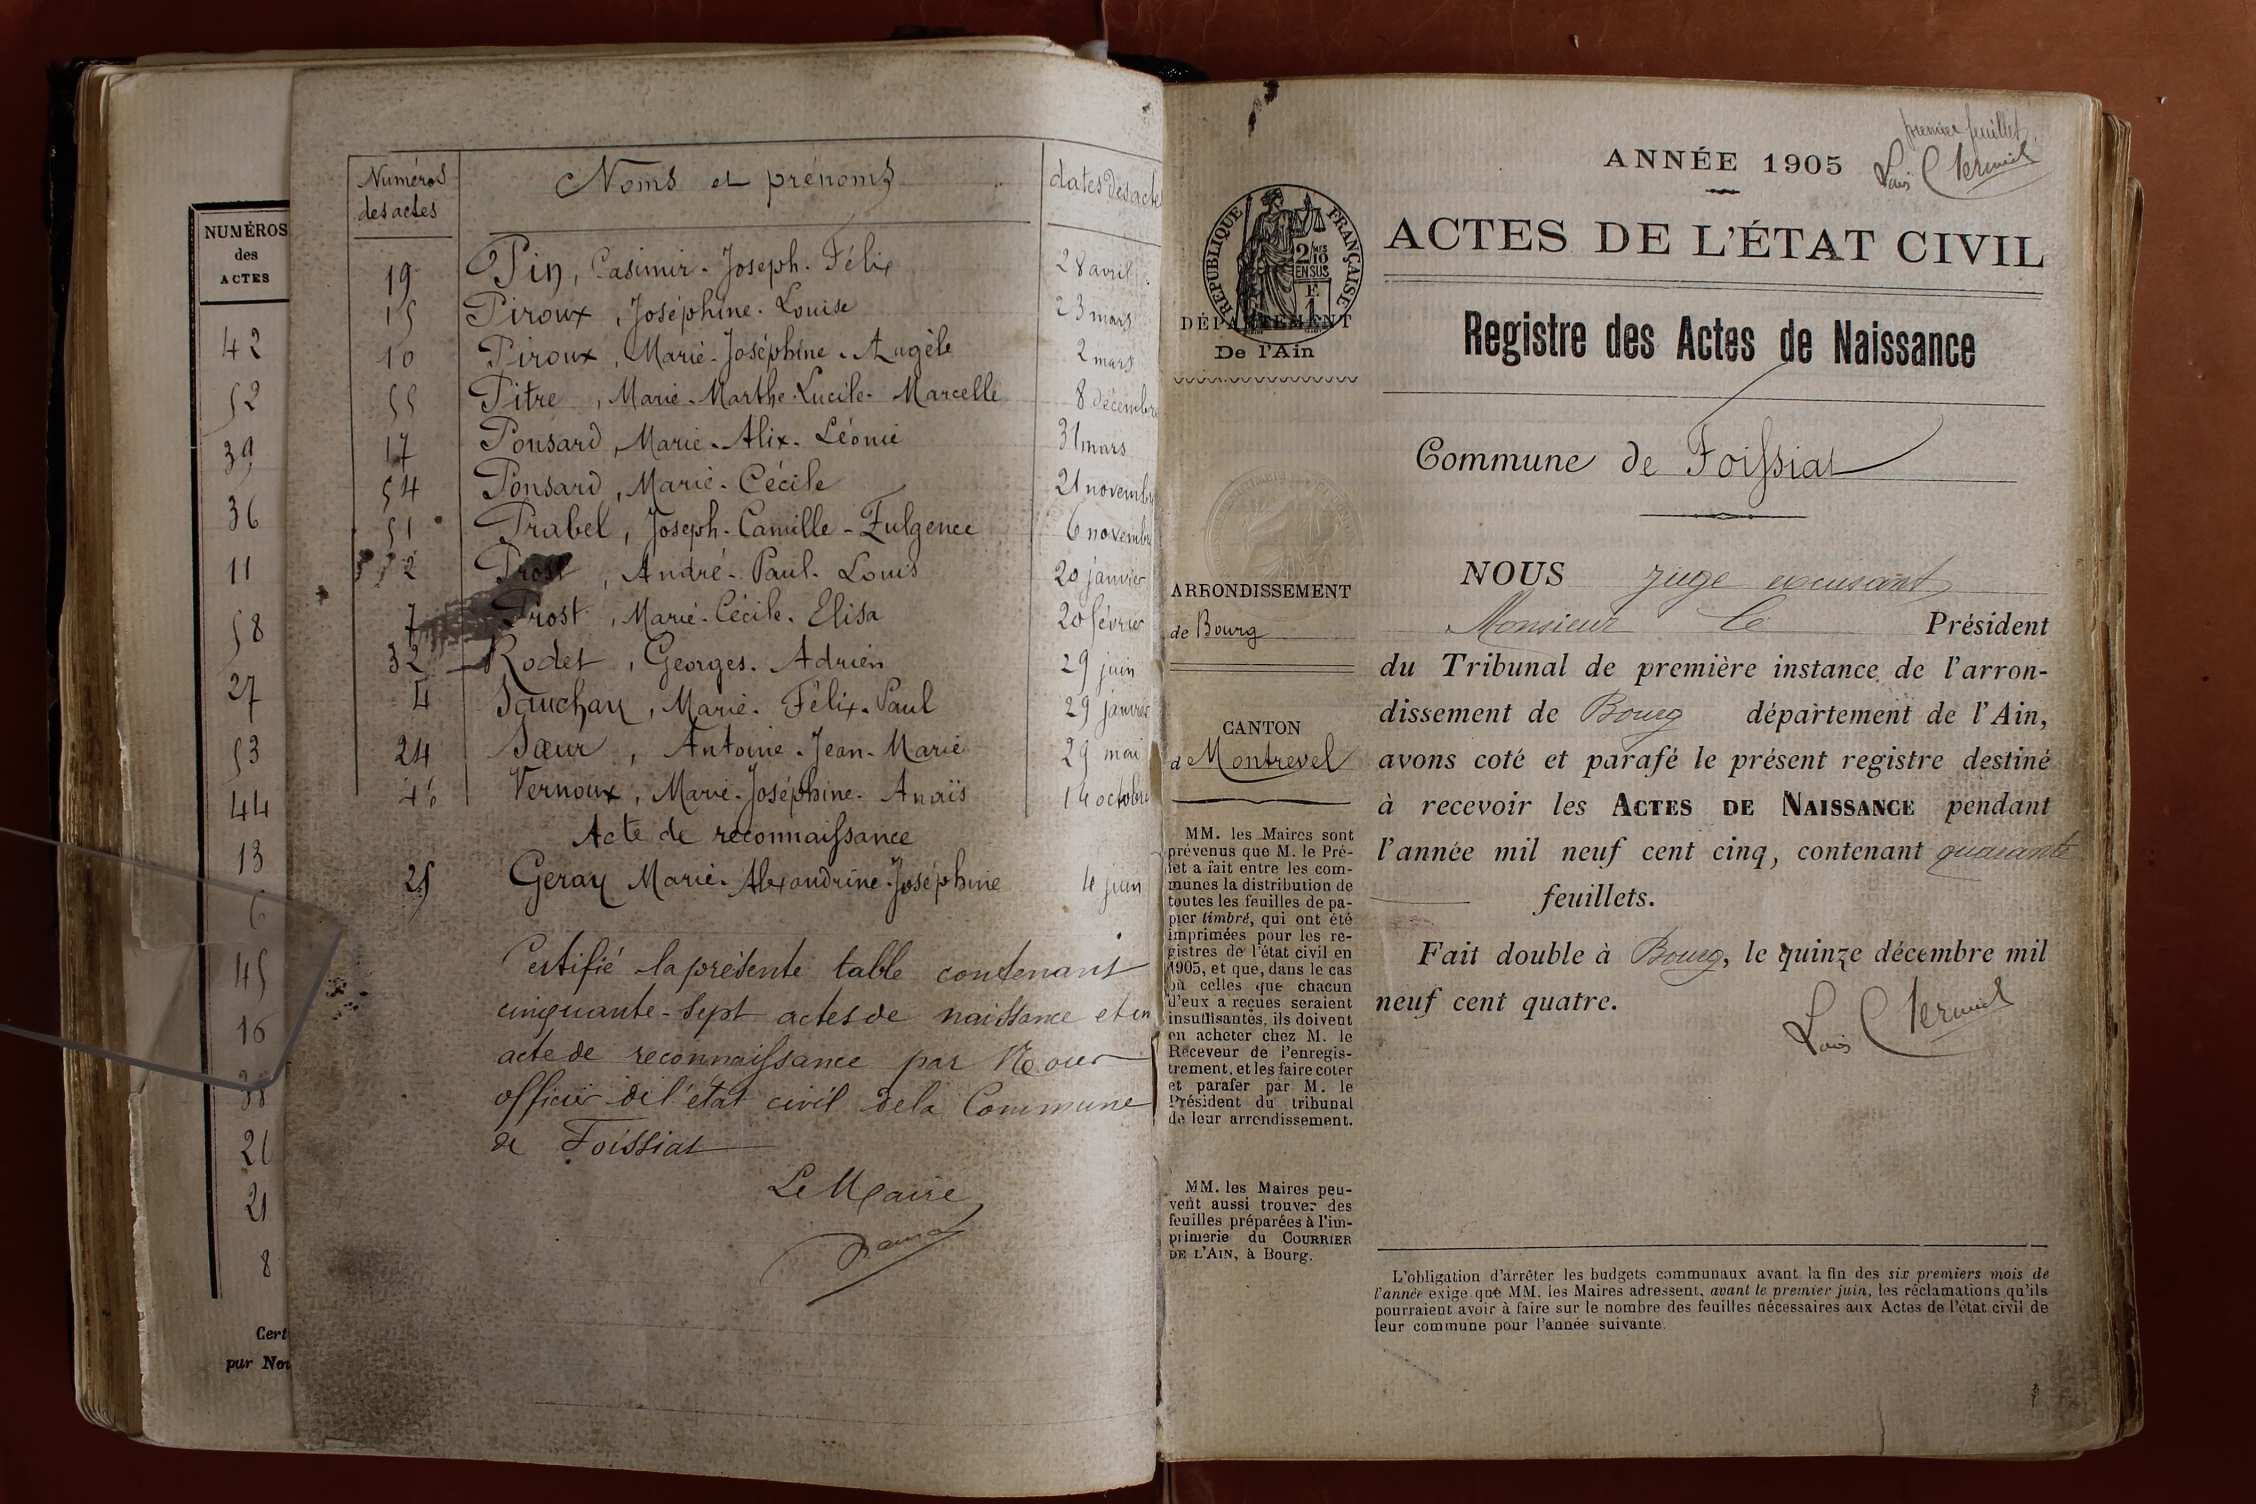 NUMÉROS
des
ACTES
42
52
39
36
11
58
27
53
44
13
6
45
16
38
21
21
8
Cert
par Nou
Numéros des actes Noms et prénoms dates des actes
19 Pin, Casimir-Joseph-Félix 28 avril
15 Piroux, Joséphine-Louise 23 mars
10 Piroux, Marie-Joséphine-Angèle 2 mars
55 Pitre, Marie-Marthe-Lucile-Marcelle 8 décembre
17 Ponsard, Marie-Alix-Léonie 31 mars
54 Ponsard, Marie-Cécile 21 novembre
51 Prabel, Joseph-Camille-Fulgence 6 novembre
2 Prost, André-Paul-Louis 20 janvier
7 Prost, Marie-Cécile-Elisa 20 février
32 Rodet, Georges-Adrien 29 juin
4 Sauchay, Marie-Félix-Paul 29 janvier
24 Sœur, Antoine-Jean-Marie 29 mai
46 Vernoux, Marie-Joséphine-Anaïs 14 octobre
Acte de reconnaissance
25 Geray Marie-Alexandrine-Joséphine 4 juin
Certifié la présente table contenant
cinquante-sept actes de naissance et un
acte de reconnaissance par Nous
officier de l'état civil de la Commune
de Foissiat
Le Maire
RÉPUBLIQUE FRANÇAISE
2/10
EN SUS
F.
1
DÉPARTEMENT
De l'Ain
ARRONDISSEMENT
de Bourg
CANTON
d Montrevel
MM. les Maires sont
prévenus que M. le Pré-
fet a fait entre les com-
munes la distribution de
toutes les feuilles de pa-
pier timbré, qui ont été
imprimées pour les re-
gistres de l'état civil en
1905, et que, dans le cas
où celles que chacun
d'eux a reçues seraient
insuffisantes, ils doivent
en acheter chez M. le
Receveur de l'enregis-
trement, et les faire coter
et parafer par M. le
Président du tribunal
de leur arrondissement.
MM. les Maires peu-
vent aussi trouver des
feuilles préparées à l'im-
primerie du COURRIER
DE L'AIN, à Bourg.
premier feuillet
ANNÉE 1905
ACTES DE L'ÉTAT CIVIL
Registre des Actes de Naissance
Commune de Foissiat
NOUS juge excusant
Monsieur le Président
du Tribunal de première instance de l'arron-
dissement de Bourg département de l'Ain,
avons coté et parafé le présent registre destiné
à recevoir les ACTES DE NAISSANCE pendant
l'année mil neuf cent cinq, contenant quarante
feuillets.
Fait double à Bourg, le quinze décembre mil
neuf cent quatre.
L'obligation d'arrêter les budgets communaux avant la fin des six premiers mois de
l'année exige que MM. les Maires adressent, avant le premier juin, les réclamations qu'ils
pourraient avoir à faire sur le nombre des feuilles nécessaires aux Actes de l'état civil de
leur commune pour l'année suivante.